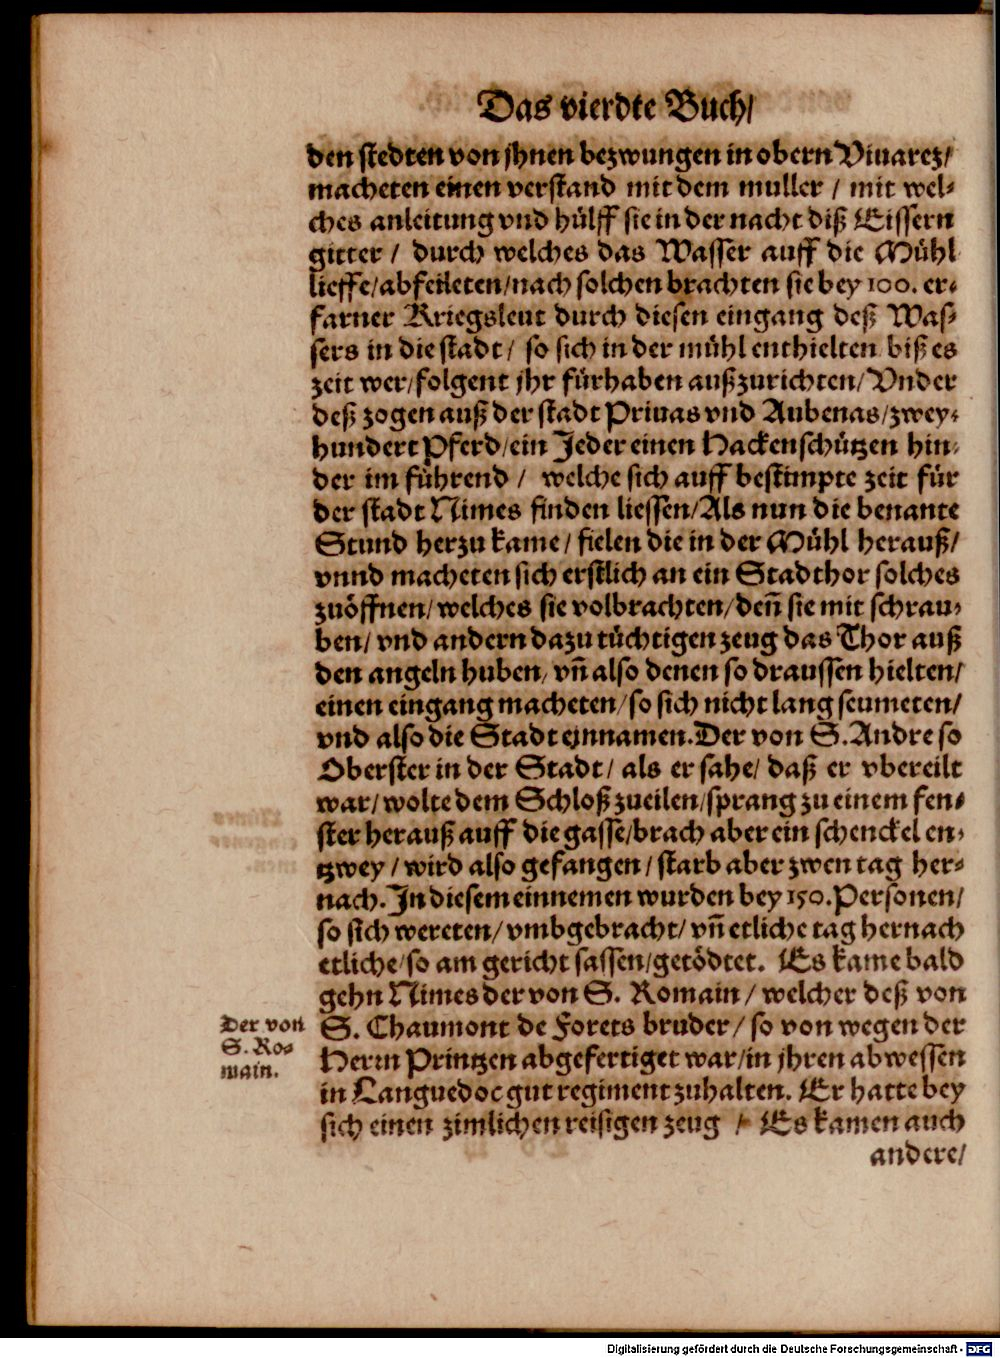 Das vierdte Buch/
den stedten von jhnen bezwungen in obern Viuarez/
macheten einen verstand mit dem muller / mit wel-
ches anleitung vnd hülff sie in der nacht diß Eissern
gitter / durch welches das Wasser auff die Mühl
lieffe/abfeileten/nach solchen brachten sie bey 100. er-
farner Kriegsleut durch diesen eingang deß Was-
sers in die stadt/ so sich in der mühl enthielten biß es
zeit wer/folgent jhr fürhaben außzurichten/Vnder
deß zogen auß der stadt Priuas vnd Aubenas/zwey-
hundert Pferd/ein Jeder einen Hackenschützen hin-
der im führend / welche sich auff bestimpte zeit für
der stadt Nimes finden liessen/Als nun die benante
Stund herzu kame/ fielen die in der Mühl herauß/
vnnd macheten sich erstlich an ein Stadthor solches
zuöffnen/welches sie volbrachten/deñ sie mit schrau-
ben/ vnd andern dazu tüchtigen zeug das Thor auß
den angeln huben/ vñ also denen so draussen hielten/
einen eingang macheten/so sich nicht lang seumeten/
vnd also die Stadt einnamen. Der von S. Andre so
Oberster in der Stadt/ als er sahe/ daß er vbereilt
war/wolte dem Schloß zueilen/sprang zu einem fen-
ster herauß auff die gasse/brach aber ein schenckel en-
tzwey / wird also gefangen/starb aber zwen tag her-
nach. In diesem einnemen wurden bey 150. Personen/
so sich wereten/vmbgebracht/vñ etliche tag hernach
etliche/so am gericht sassen/getödtet. Es kame bald
gehn Nimes der von S. Romain / welcher deß von
Der von
S. Ro-
main.
S. Chaumont de Forets bruder/ so von wegen der
Herrn Printzen abgefertiget war/in jhren abwessen
in Languedoc gut regiment zuhalten. Er hatte bey
sich einen zimlichen reisigen zeug / Es kamen auch
andere/
Digitalisierung gefördert durch die Deutsche Forschungsgemeinschaft - DFG